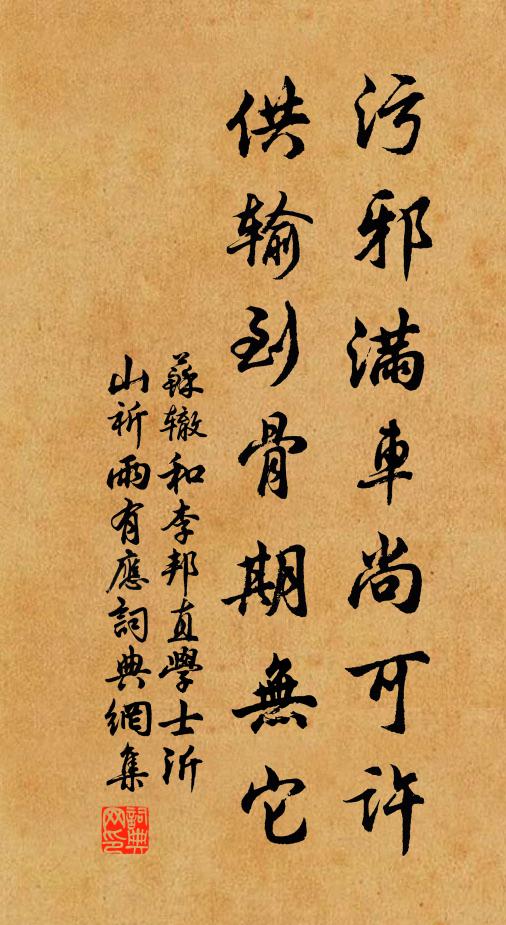 污邪滿車尚可许
供输到骨期無它
蘇辙和李邦直學士沂
山祈雨有應詞典網集
詞典
网印